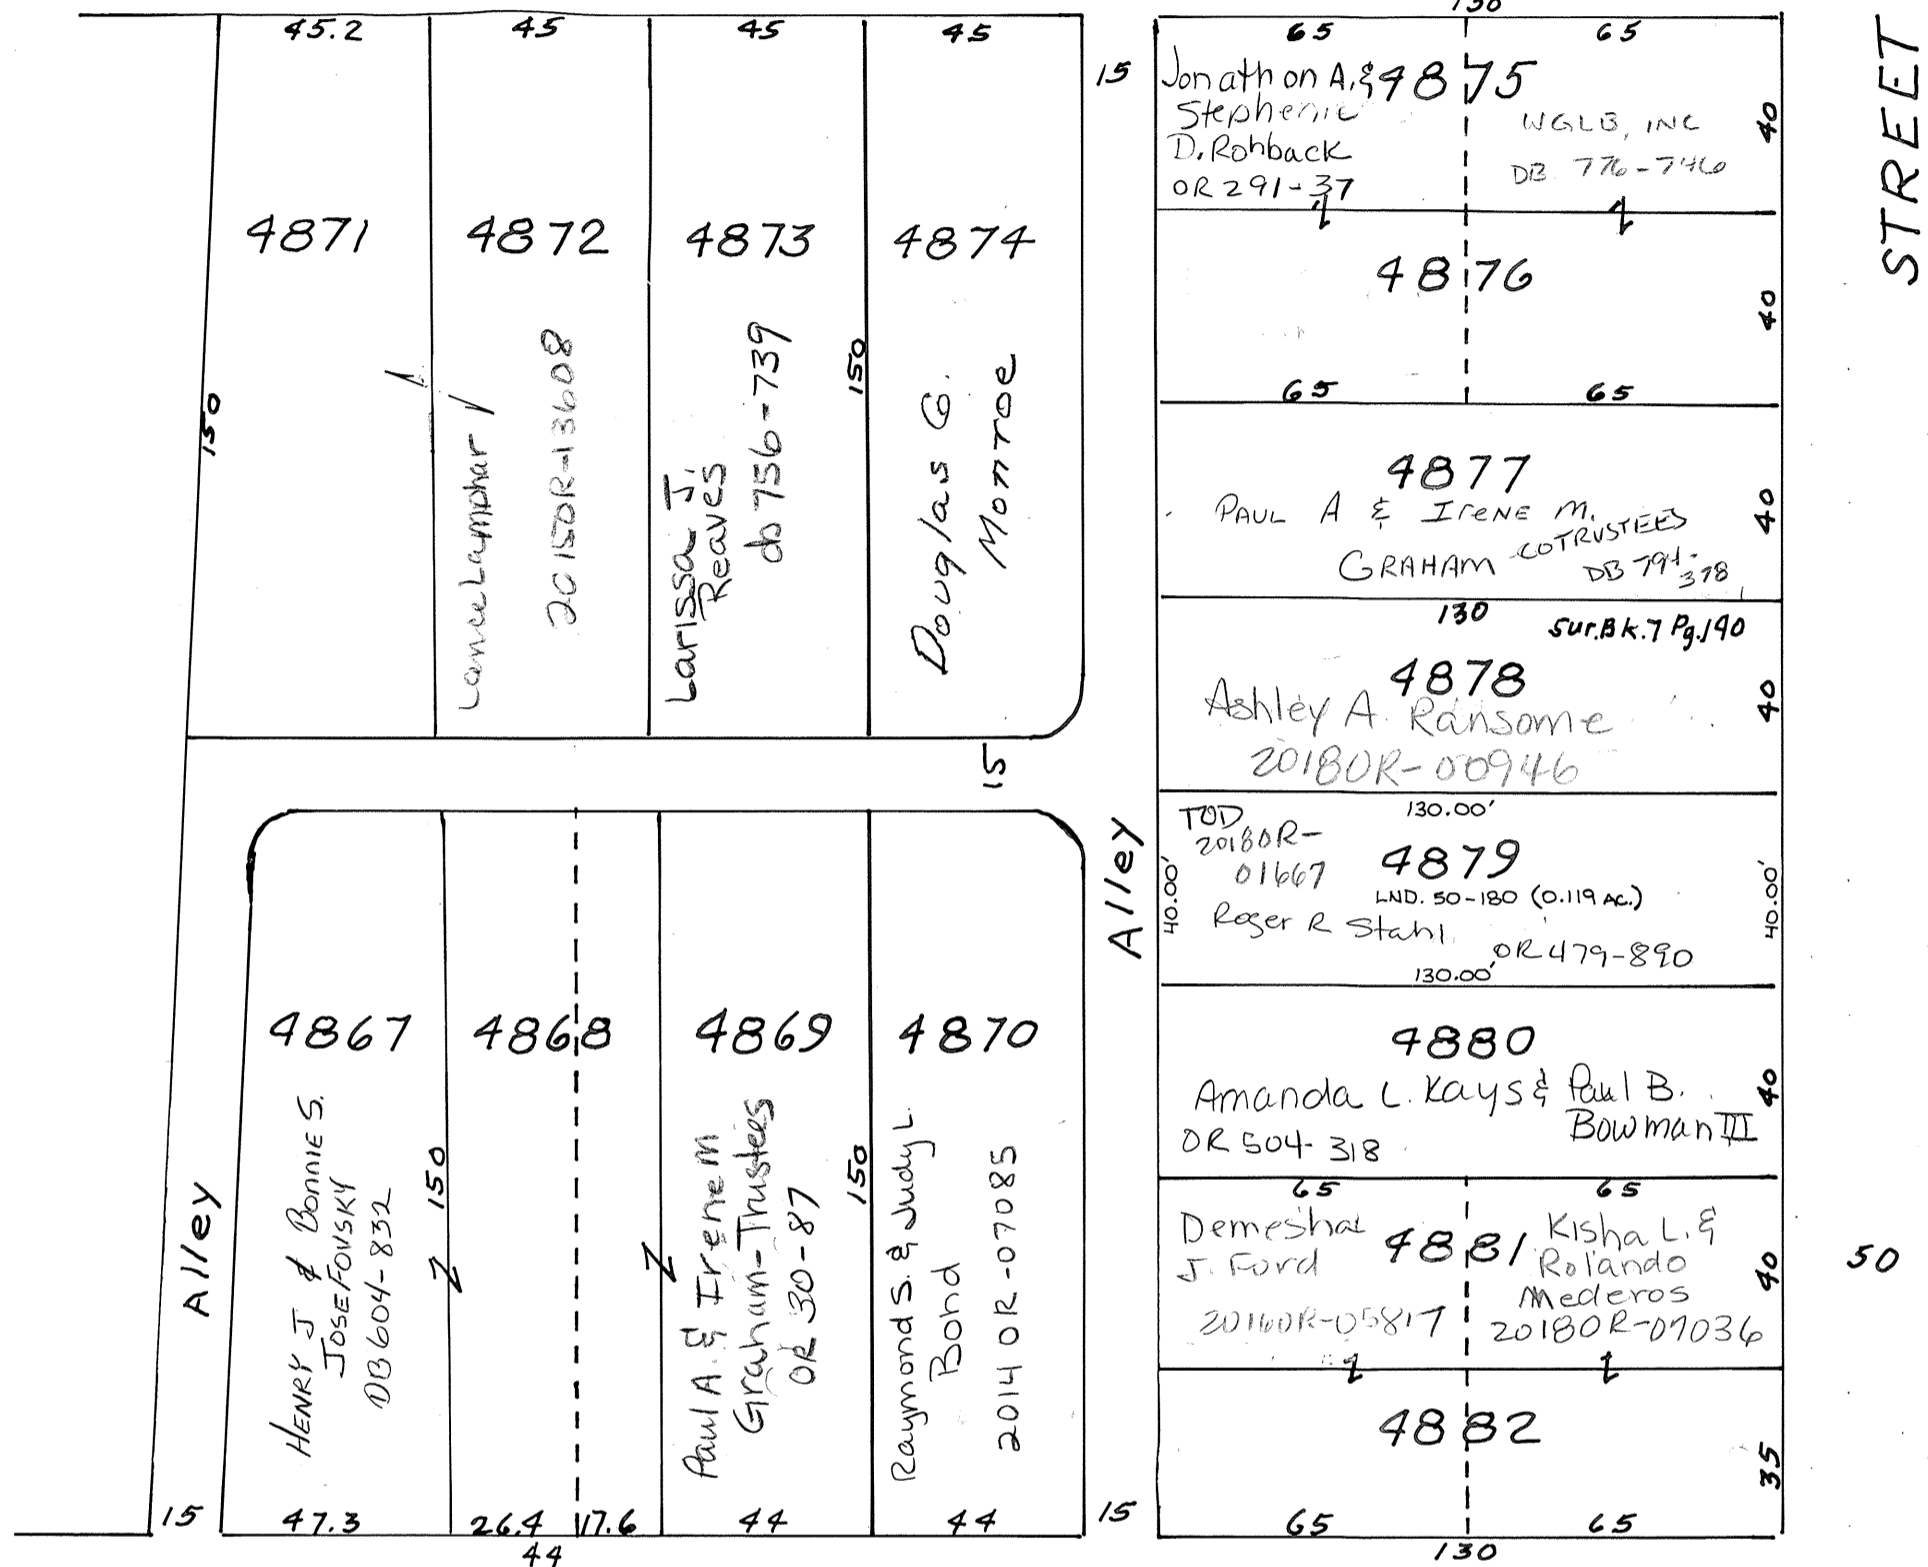 45.2
45
45
45
4871
4872
4873
4874
150
150
Lance Lamphar
2015OR-13608
Larissa J.
Reaves
db 756-739
Douglas G.
Monroe
15
15
Alley
15
4867
4868
4869
4870
HENRY J & BONNIE S.
JOSEFOVSKY
DB 604-832
150
Paul A. & Irene M
Graham-Trustees
OR 30-87
150
Raymond S. & Judy L.
Bond
2014OR-07085
Alley
15
47.3
26.4
17.6
44
44
44
15
130
65
65
Jonathon A. &
Stephenie
D. Rohback
OR 291-37
4875
WGLB, INC
DB 776-746
40
4876
40
65
65
4877
PAUL A & IRENE M.
GRAHAM -COTRUSTEES
DB 794-
378
40
130
Sur.Bk.7 Pg.190
4878
Ashley A. Ransome
2018OR-00946
40
130.00'
TOD
2018OR-
01667
4879
LND. 50-180 (0.119 AC.)
Roger R Stahl
OR 479-890
40.00'
40.00'
130.00'
4880
Amanda L. Kays & Paul B.
Bowman III
OR 504-318
40
65
65
Demesha
J. Ford
2016OR-05817
4881
Kisha L. &
Rolando
Mederos
2018OR-07036
40
4882
35
65
65
130
STREET
50